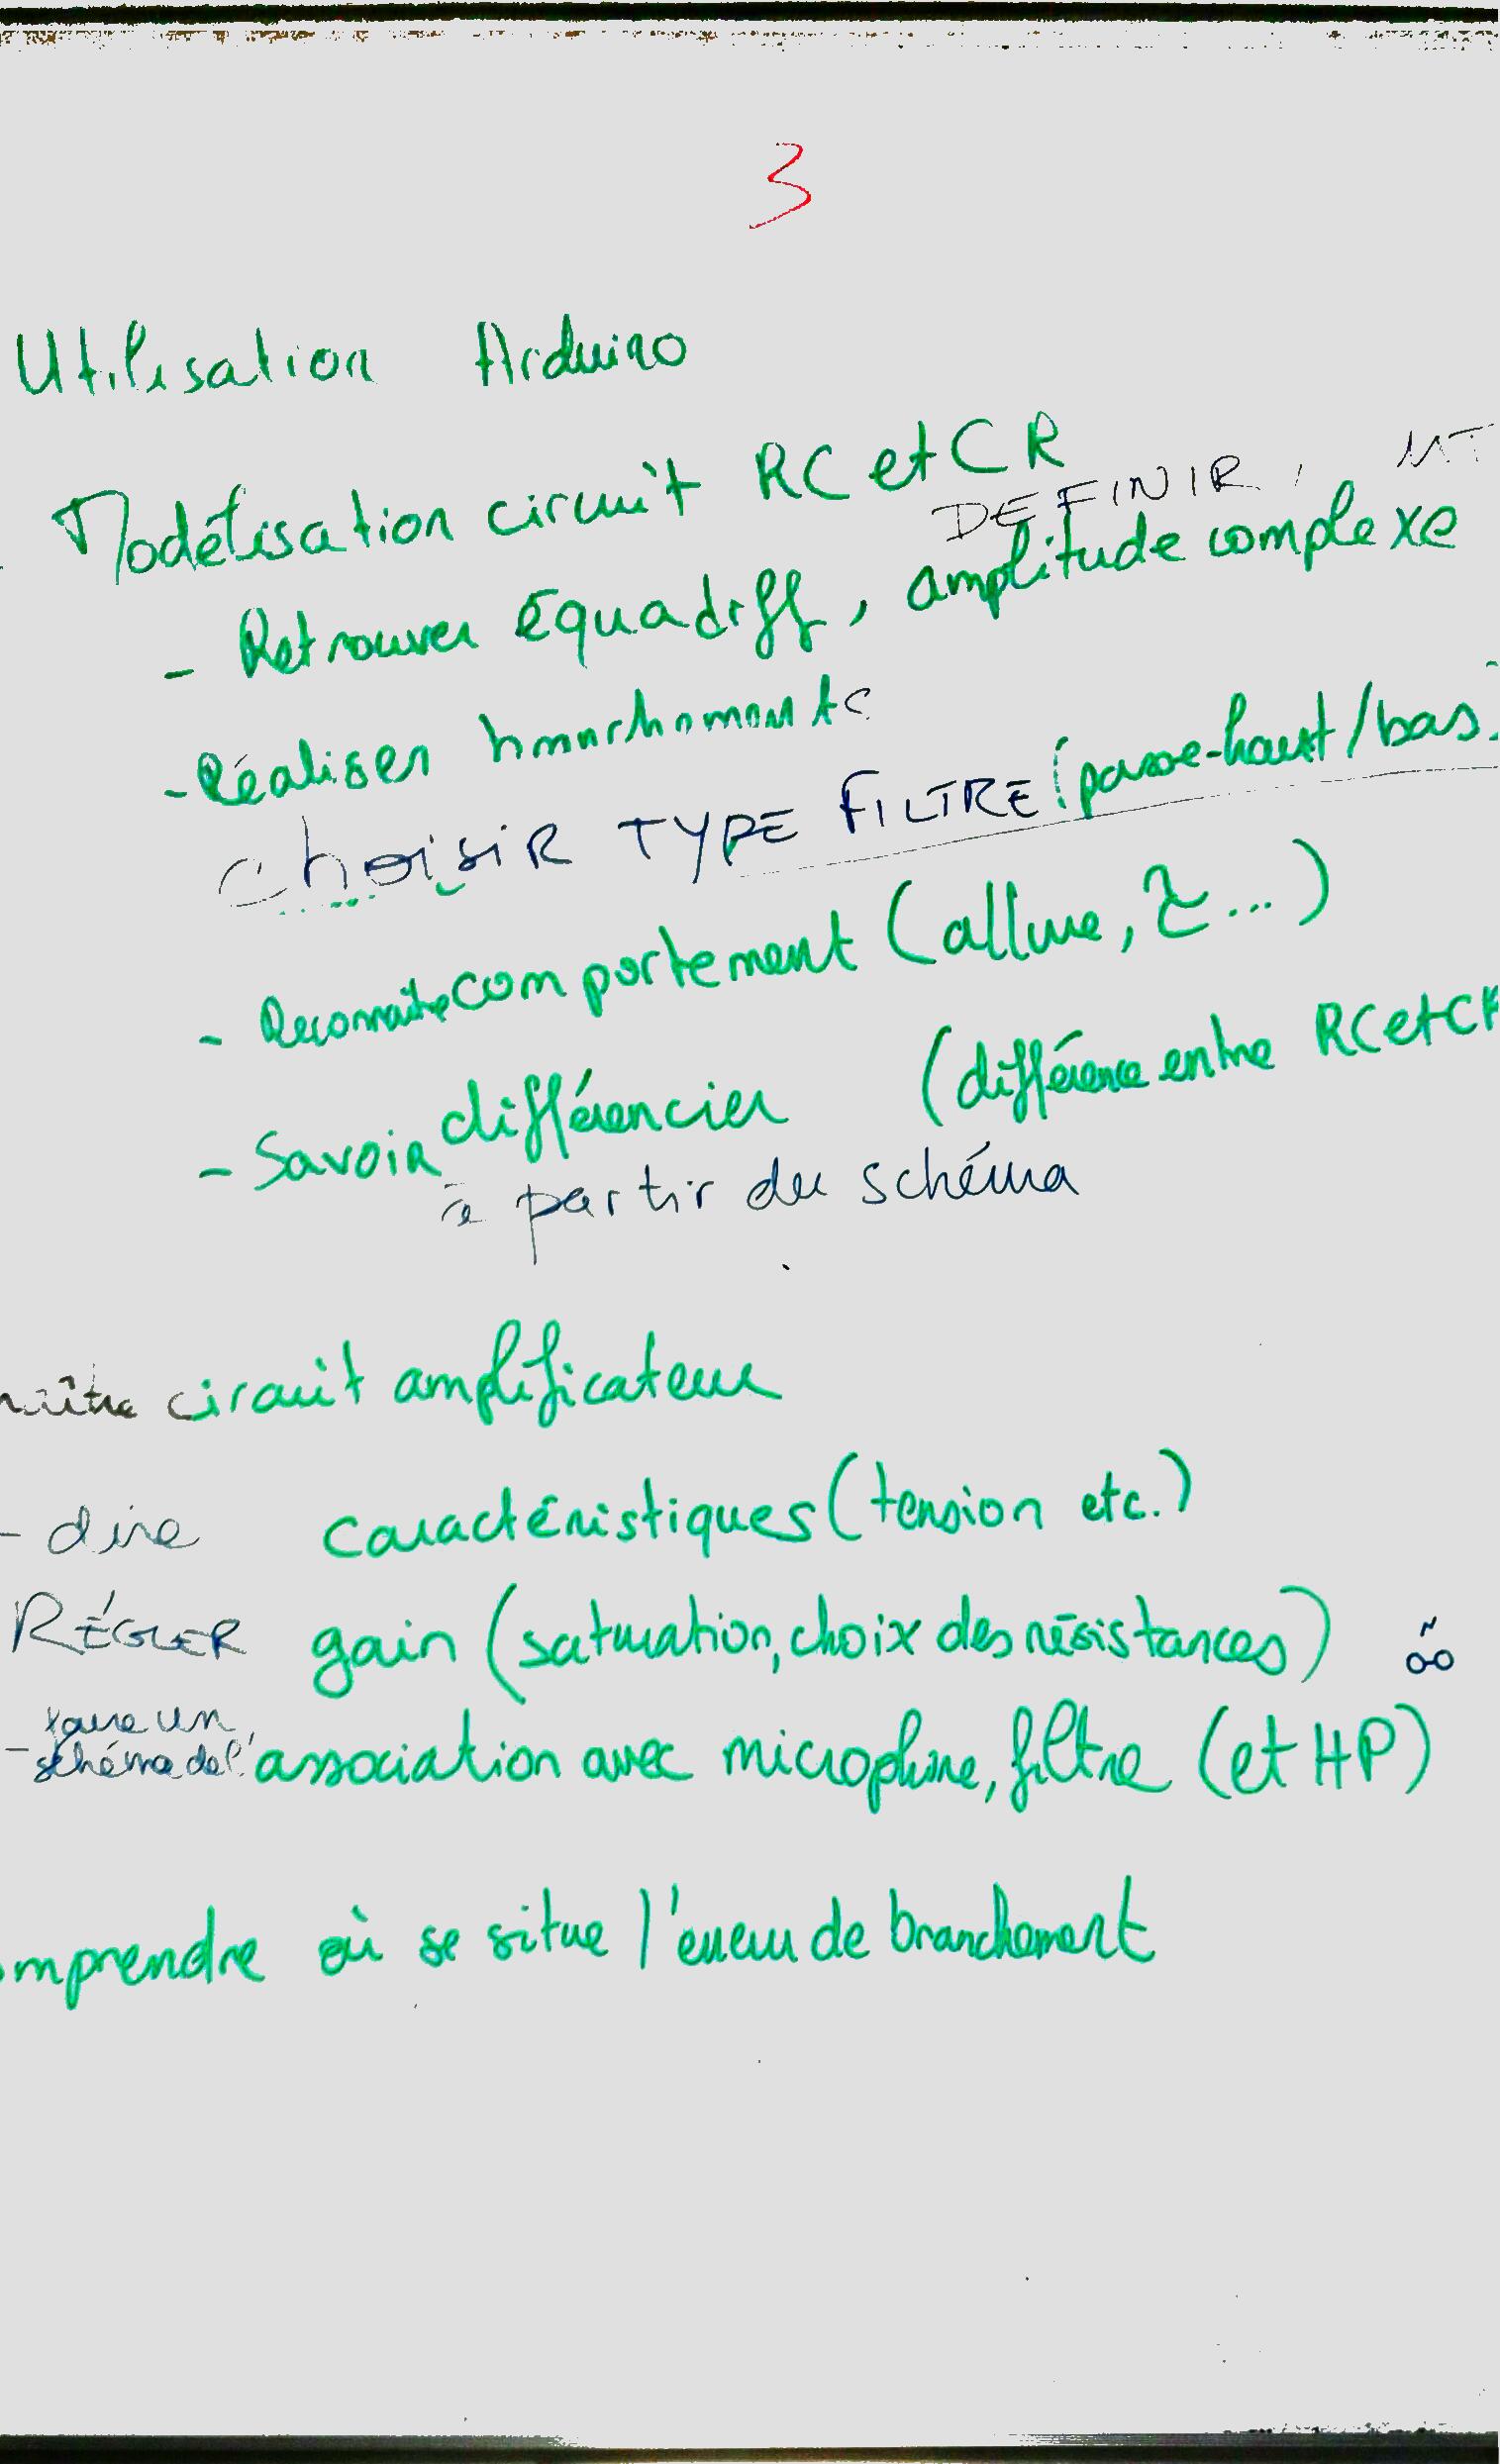 3
Utilisation Arduino
Modélisation circuit RC et CR
DEFINIR,
- Retrouver équadiff, amplitude complexe
- Réaliser branchements
choisir TYPE FILTRE (passe-haut/bas)
- Reconnaître comportement (allure, τ...)
- Savoir différencier (différence entre RC et CR
à partir du schéma
circuit amplificateur
- dire caractéristiques (tension etc.)
RÉGLER gain (saturation, choix des résistances)
- faire un schéma de l'association avec microphone, filtre (et HP)
omprendre où se situe l'erreur de branchement